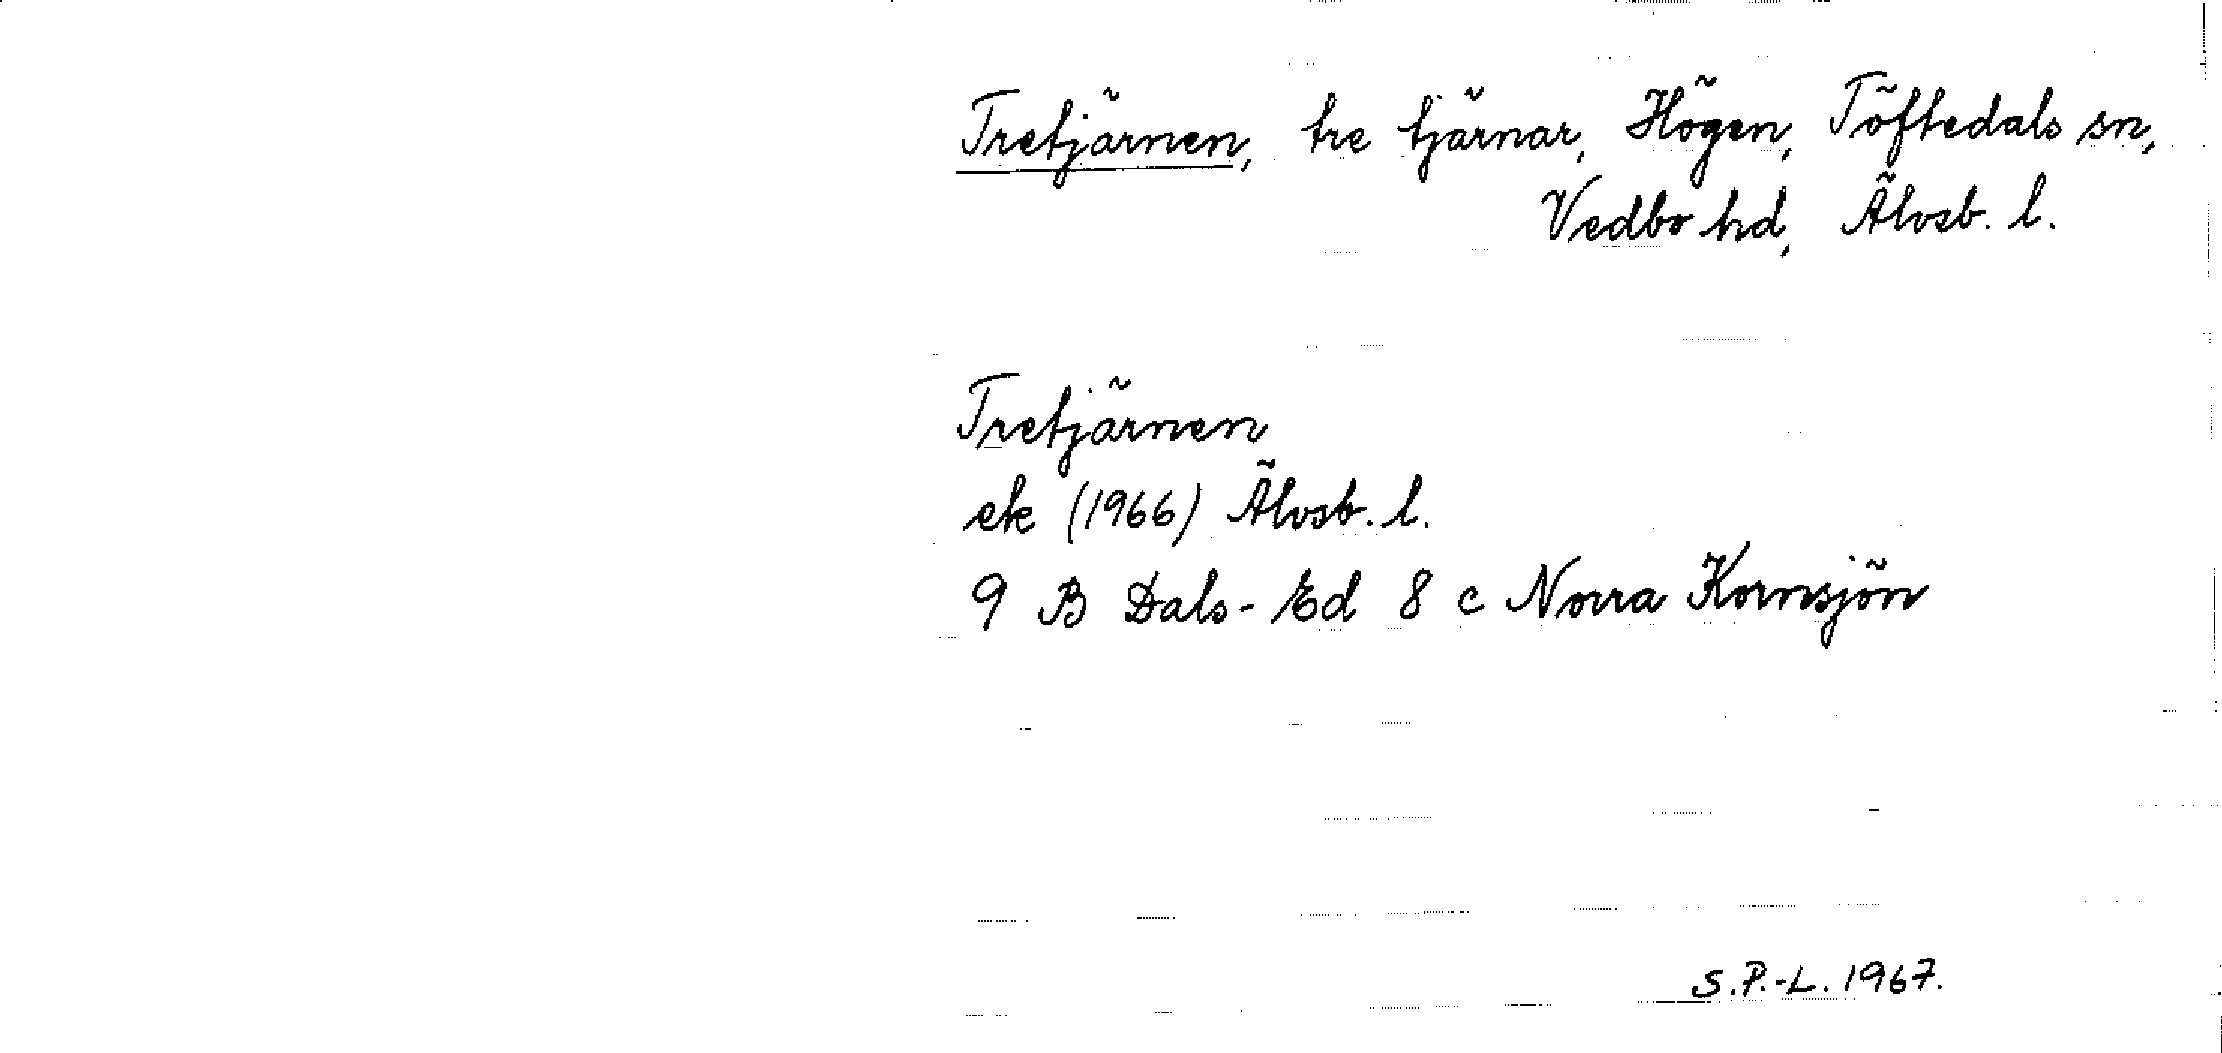 Tretjärnen, tre tjärnar, Högen, Töftedals sn,
Vedbo hd, Älvsb. l.
Tretjärnen
ek (1966) Älvsb. l.
9 B Dals-Ed 8 c Norra Kornsjön
S.P.-L. 1967.